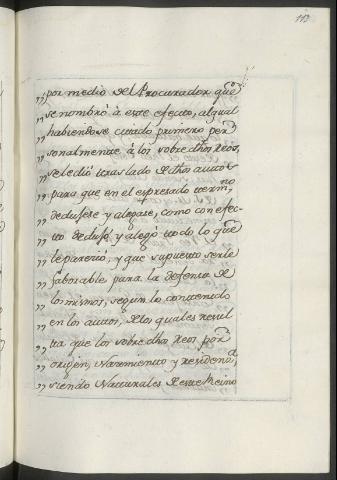 113
,, por medio del Procurador qᵉ̃
,, se nombró à este efecto, al qual
,, habiendose citado primero per
,, sonalmente à los sobredhos Reos,
,, se le dió traslado de dhos autos
,, para que en el expresado termno
,, dedujese y alegase, como con efec-
,, to dedujo y alegó todo lo qᵉ̃
,, le pareció, y que supuso serle
,, faborable para la defensa de
,, los mismos, segun lo contenido
,, en los autos, de los quales resul
,, ta que los sobredhos Reos por
,, origen, Nacimiento y residena,
,, siendo Naturales de este Reino